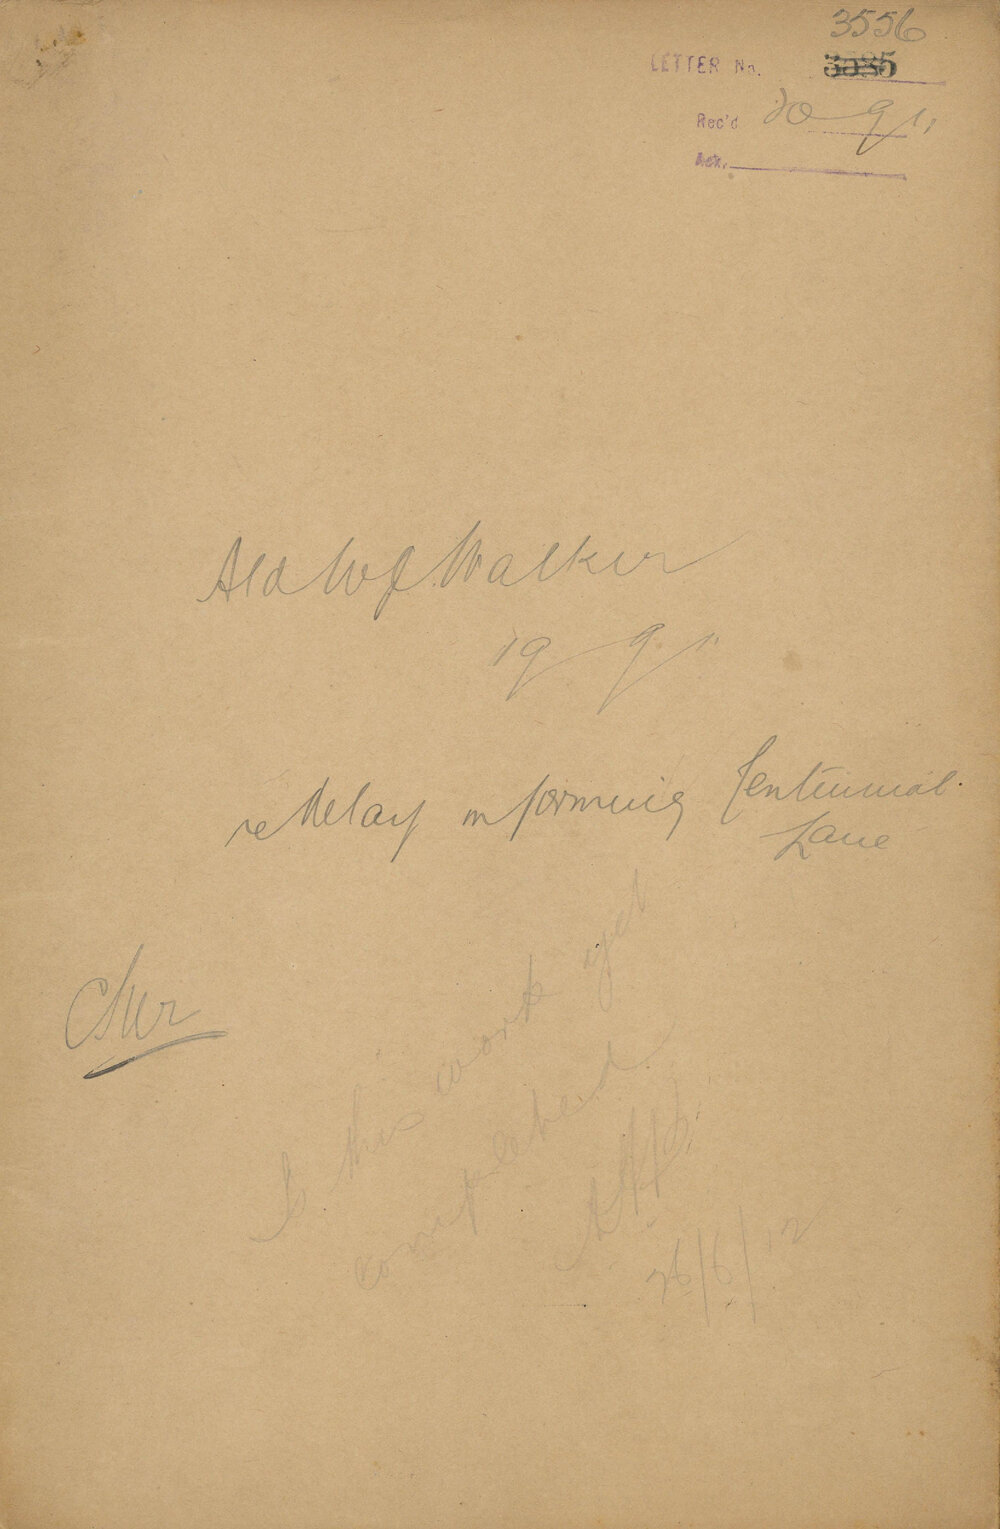 3556
LETTER No. 3535
Rec'd 20 9 11
Ack.
Ald W J Walker
19 9 11
re delay in forming Centennial
Lane
Is this work yet
completed
26/6/12